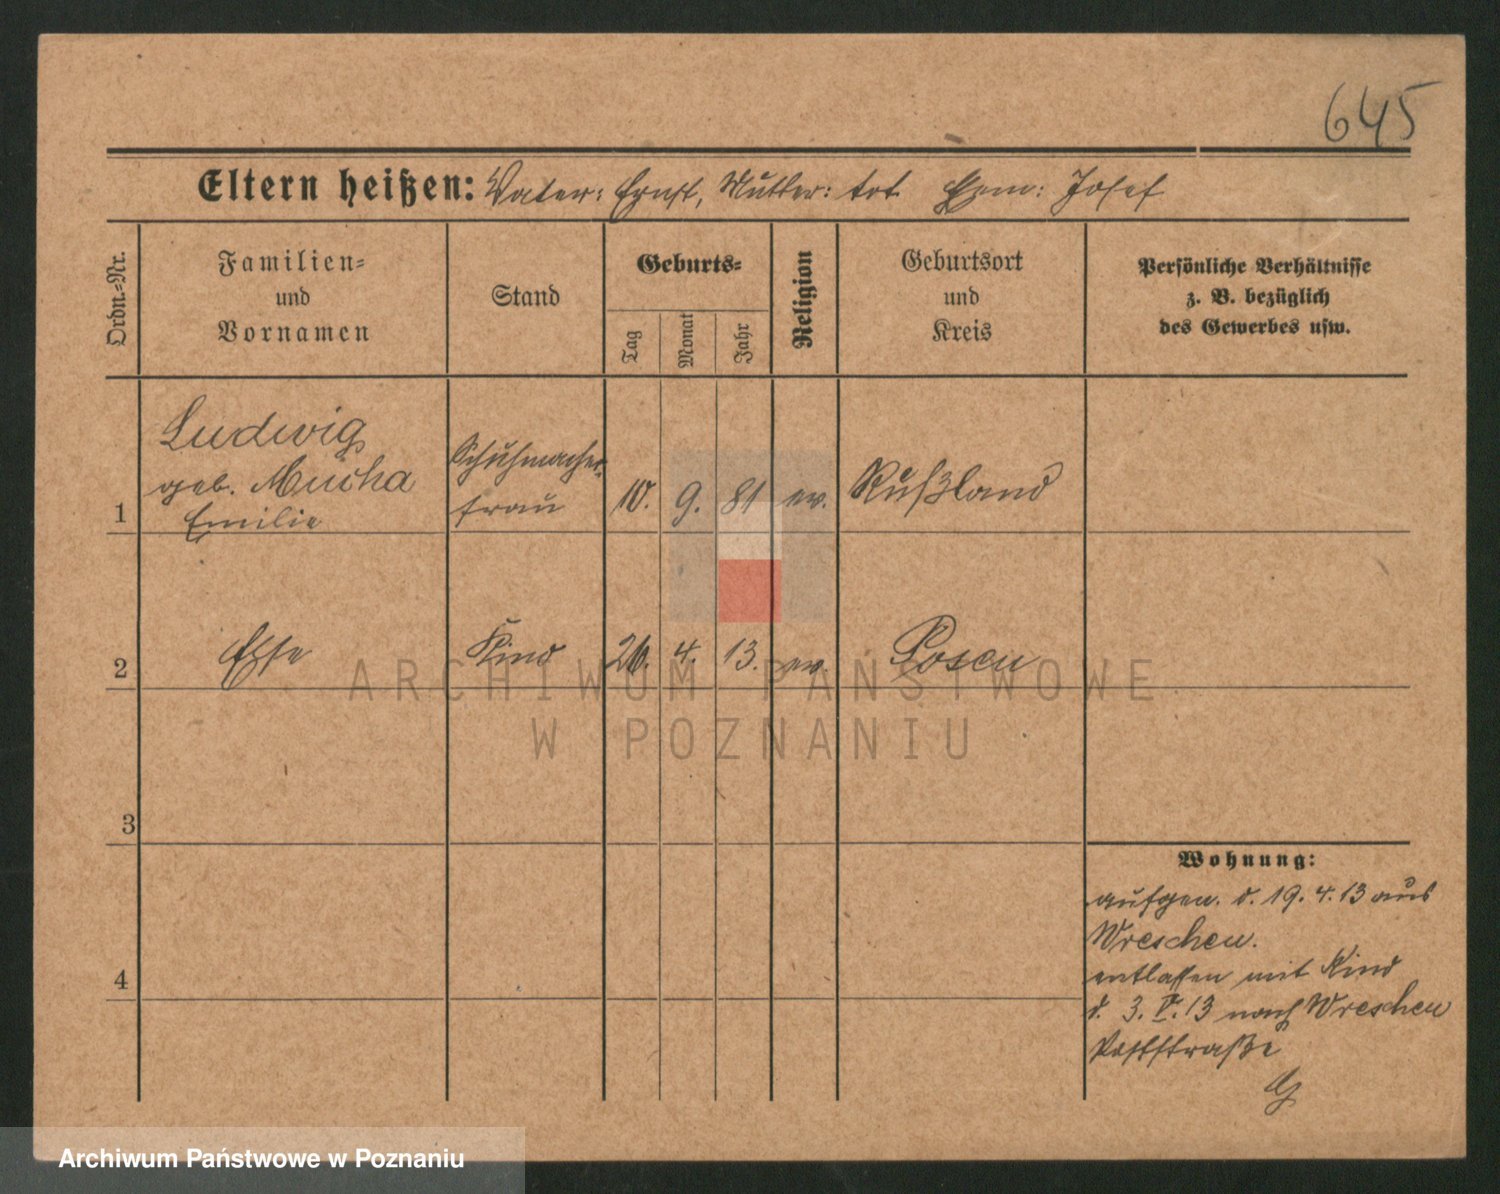 645
Eltern heißen: Vater: Ernst, Mutter: tot Ehem: Josef
Ordn.-Nr.
Familien-
und
Vornamen
Stand
Geburts-
Tag
Monat
Jahr
Religion
Geburtsort
und
Kreis
Persönliche Verhältnisse
z. B. bezüglich
des Gewerbes usw.
1
Ludwig
geb. Mucha
Emilie
Schuhmacher-
frau
10. 9. 81 ev. Rußland
2 Else Kind 26. 4. 13. ev. Posen
ARCHIWUM PAŃSTWOWE
W POZNANIU
3
Wohnung:
aufgen. d. 19. 4. 13 aus
Wreschen.
entlassen mit Kind
d. 3. V. 13 nach Wreschen
Poststraße
4
Archiwum Państwowe w Poznaniu